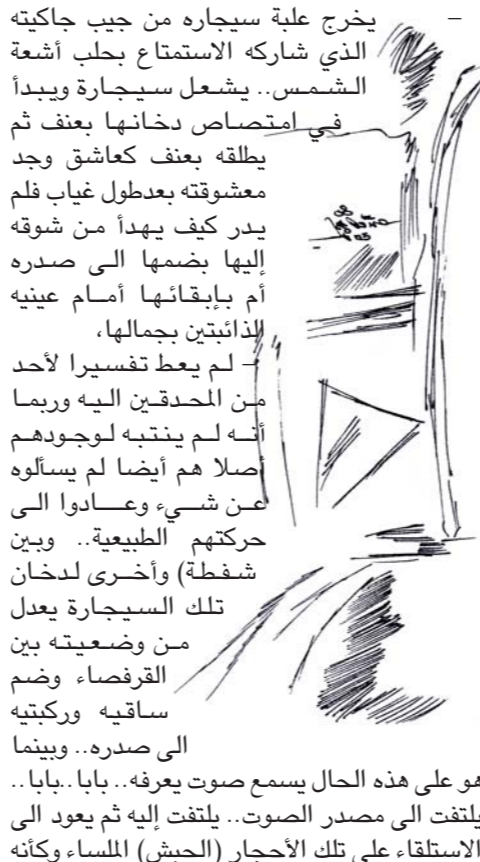 – يخرج علبة سيجاره من جيب جاكيته
الذي شاركه الاستمتاع بحلب أشعة
الشمس.. يشعل سيجارة ويبدأ
في امتصاص دخانها بعنف ثم
يطلقه بعنف كعاشق وجد
معشوقته بعدطول غياب فلم
يدر كيف يهدأ من شوقه
إليها بضمها الى صدره
أم بإبقائها أمام عينيه
الذائبتين بجمالها،
– لم يعط تفسيرا لأحد
من المحدقين اليه وربما
أنه لم ينتبه لوجودهم
أصلا هم أيضا لم يسألوه
عن شيء وعادوا الى
حركتهم الطبيعية.. وبين
شفطة) وأخرى لدخان
تلك السيجارة يعدل
من وضعيته بين
القرفصاء وضم
ساقيه وركبتيه
الى صدره.. وبينما
هو على هذه الحال يسمع صوت يعرفه.. بابا..بابا..
يلتفت الى مصدر الصوت.. يلتفت إليه ثم يعود الى
الاستلقاء على تلك الأحجار (الحبش) الملساء وكأنه